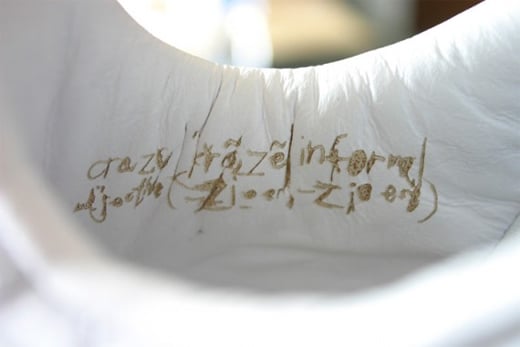 crazy |'krãzẽ| informal
adjective (-zier,